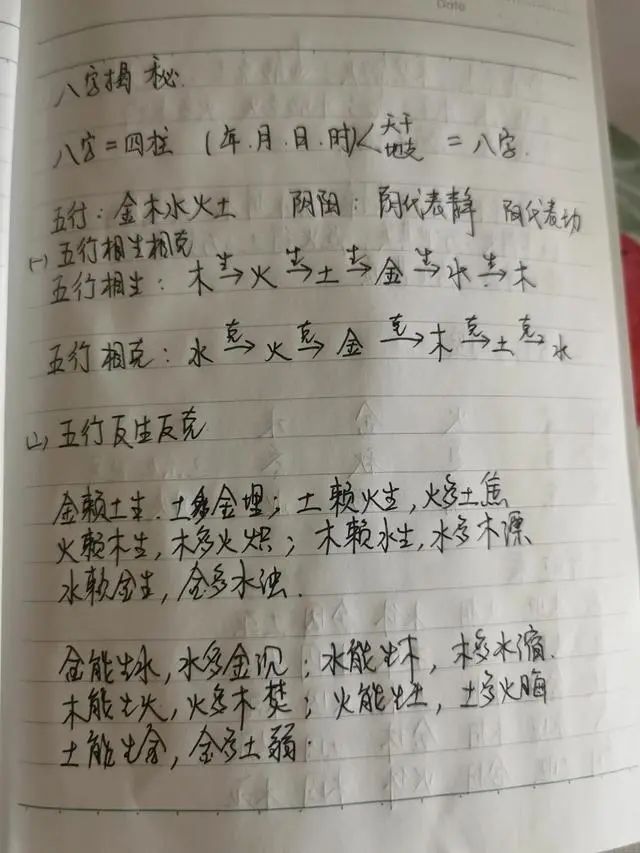 Date
八字揭秘.
八字=四柱 (年.月.日.时)<天干 地支 =八字.
五行:金木水火土 阴阳:阴代表静 阳代表动
(一)五行相生相克
五行相生:木生→火生→土生→金生→水生→木
五行相克:水克→火克→金克→木克→土克→水
(二)五行反生反克
金赖土生.土多金埋;土赖火生,火多土焦
火赖木生,木多火炽;木赖水生,水多木漂
水赖金生,金多水浊.
金能生水,水多金沉;水能生木,木多水缩.
木能生火,火多木焚;火能生土,土多火晦
土能生金,金多土弱.